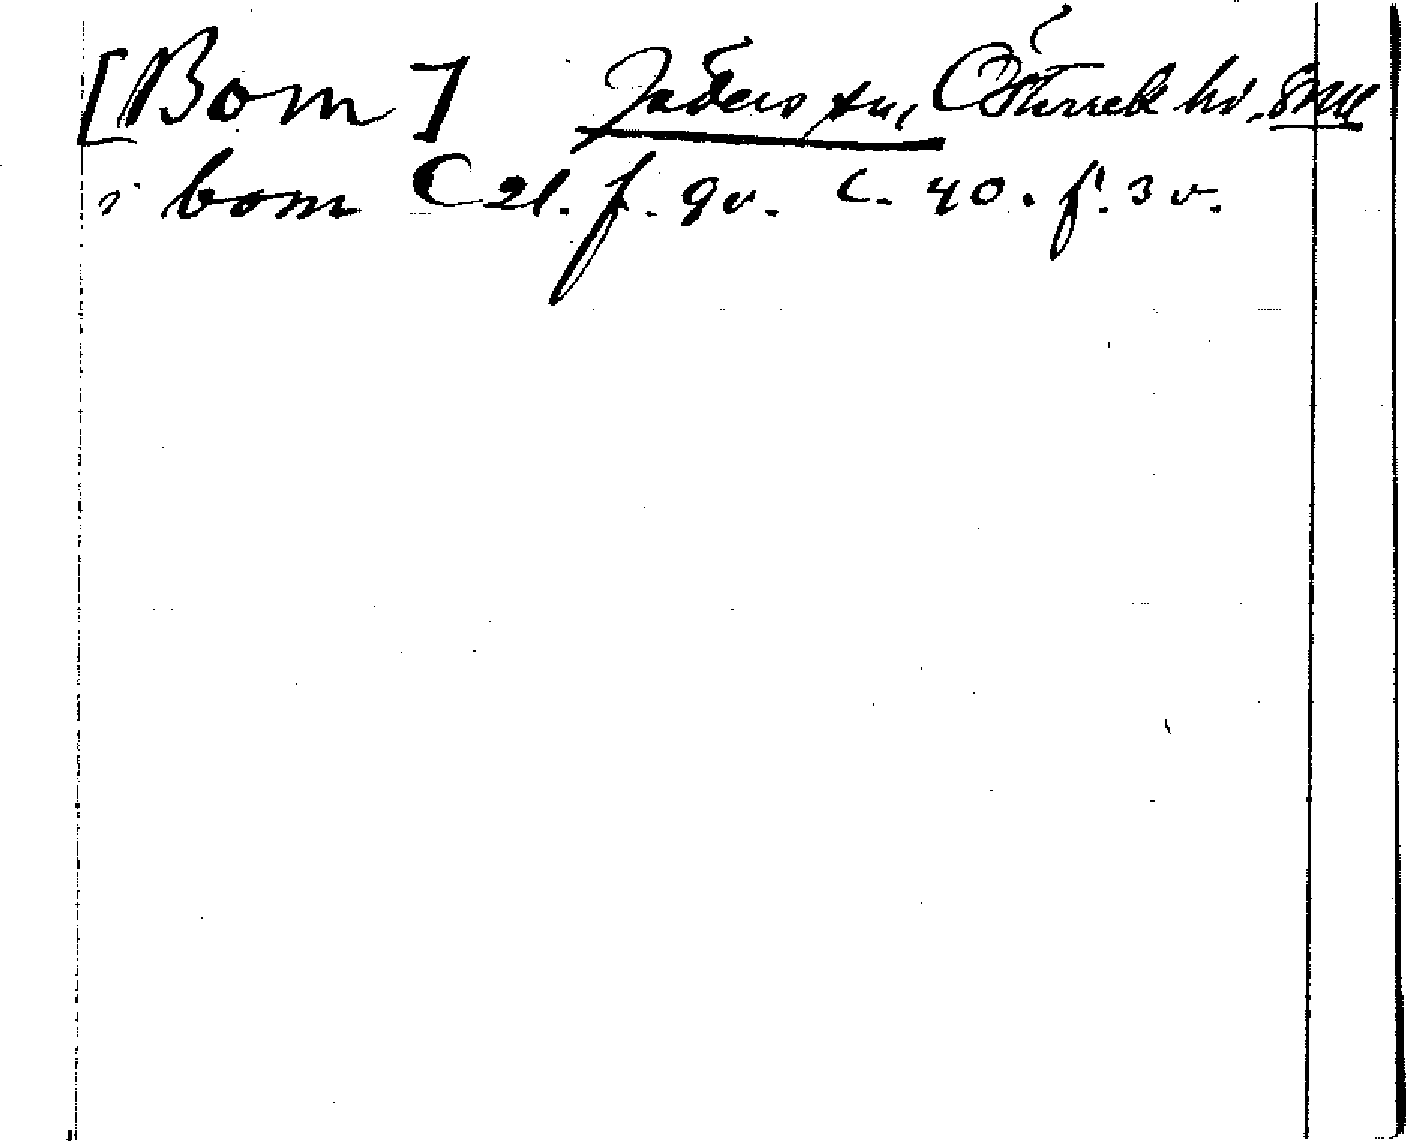 [Bom] Jäders sn, Österrek hd. Sdml
i bom C 21. f. 9v. C. 40. f. 3 v.